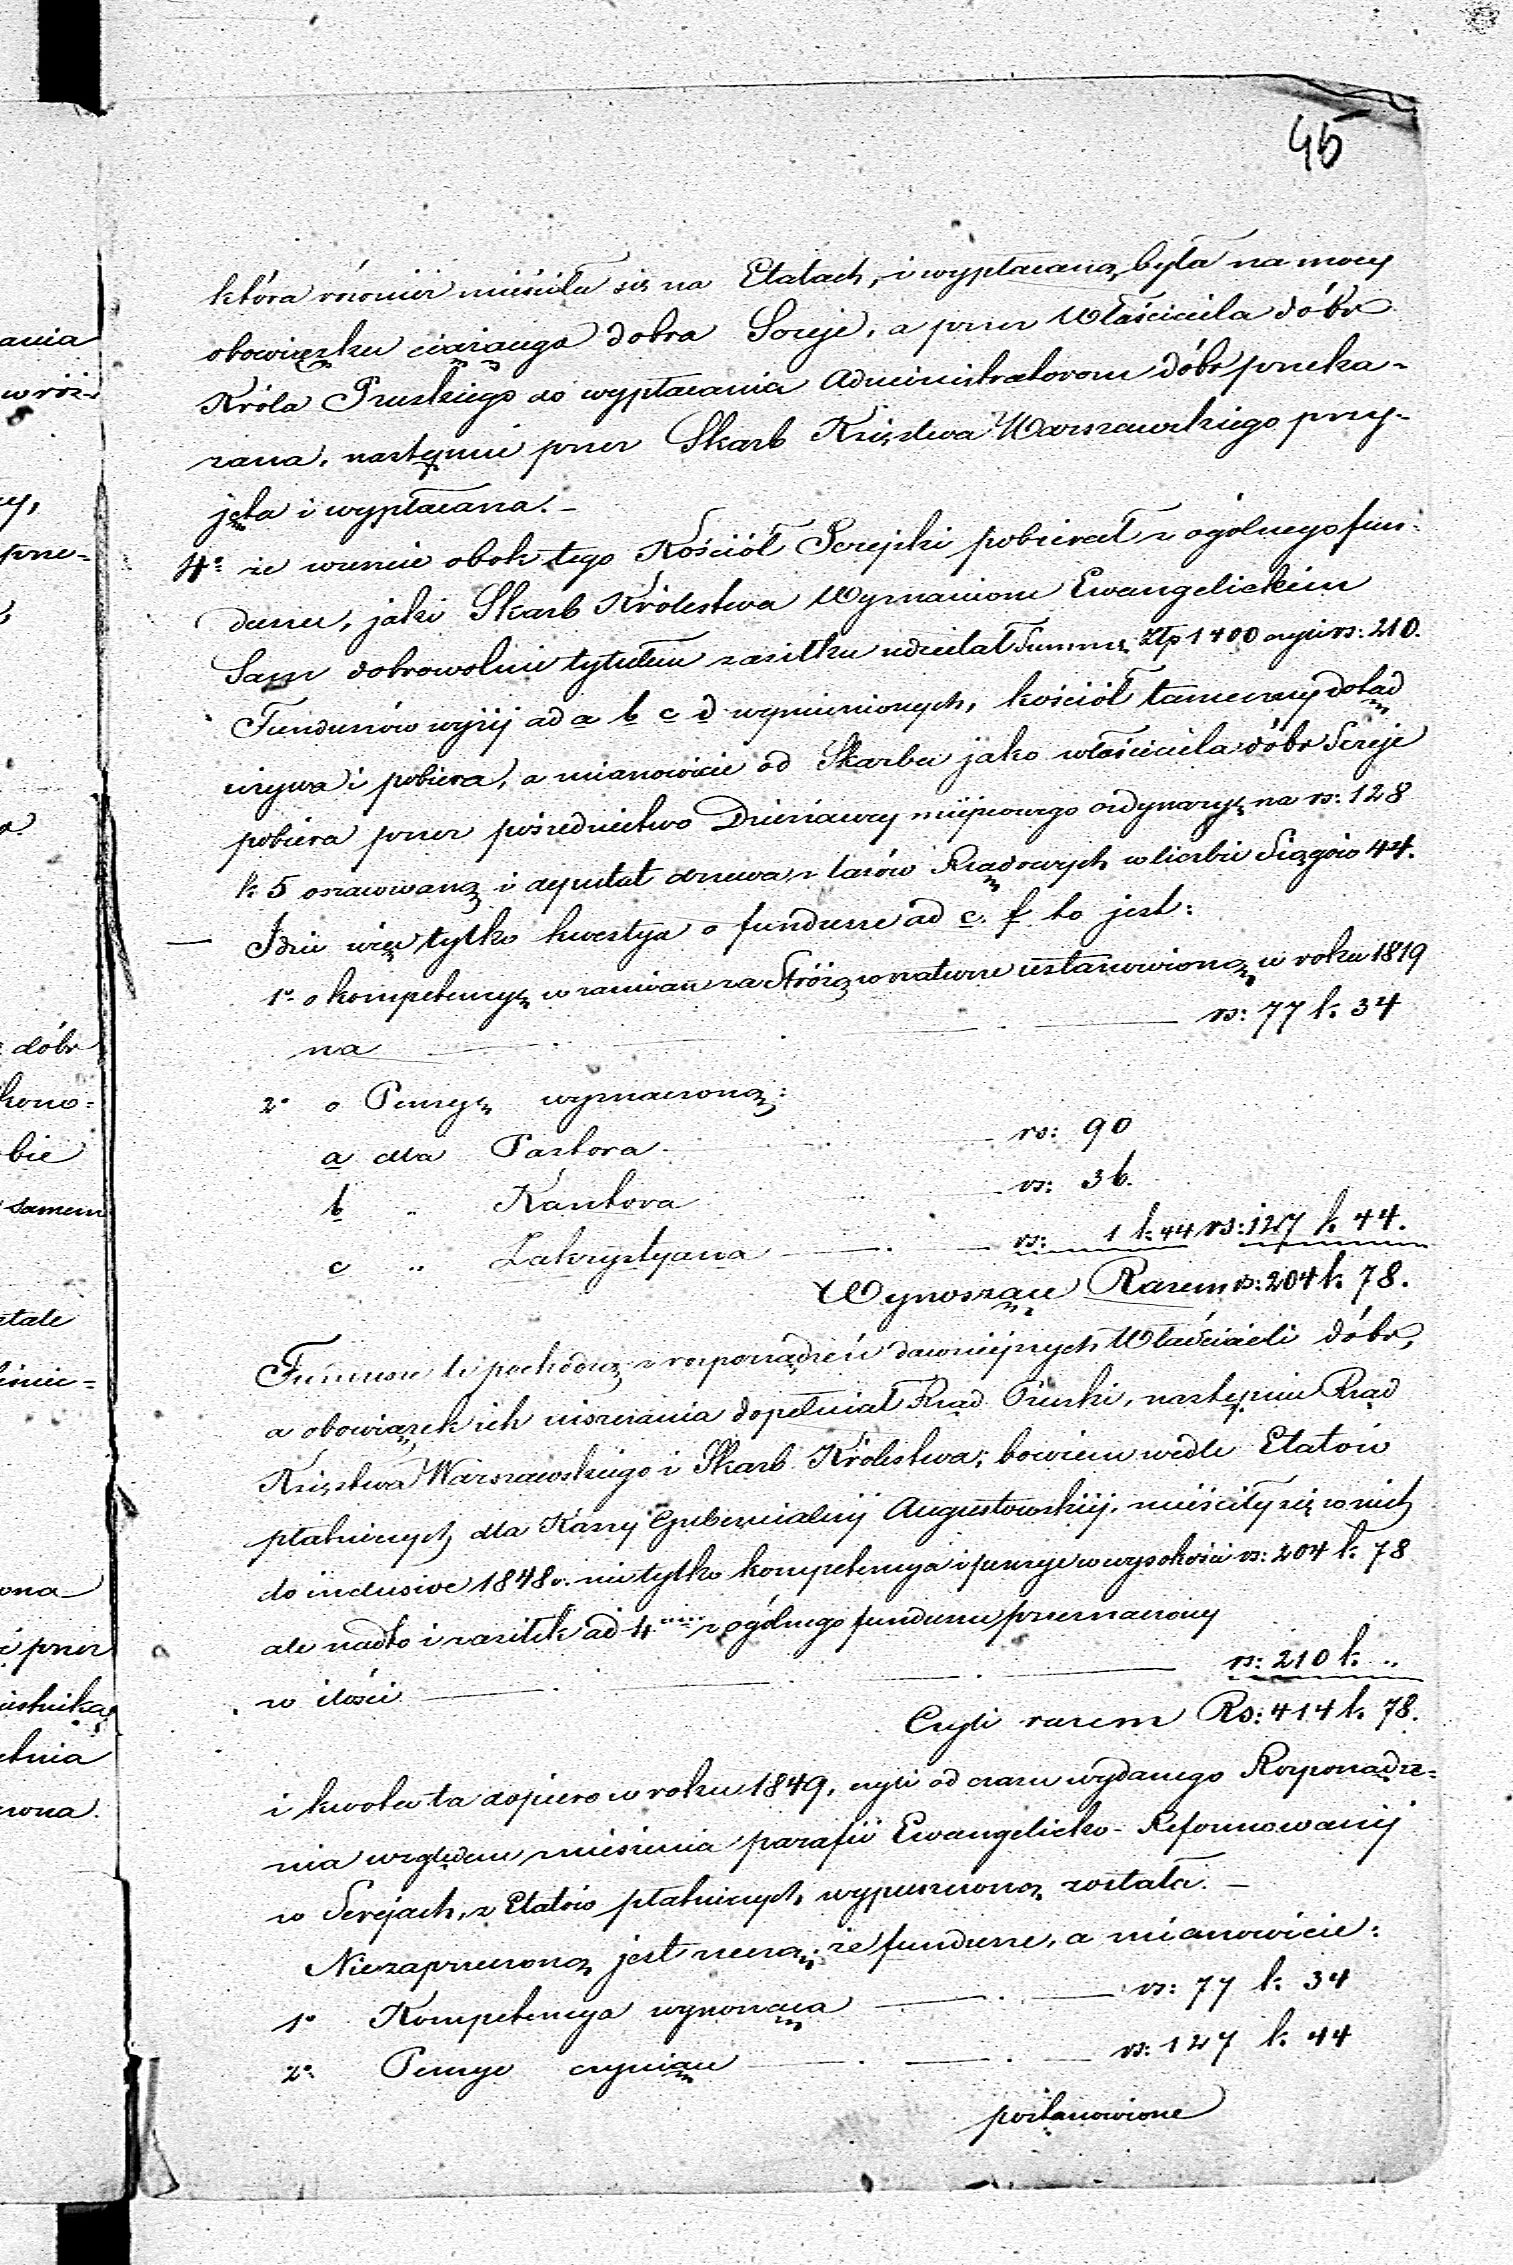 45
która również mieściła się na Etatach, i wypłacaną była na mocy
obowiązku ciążącego dobra Sereje, a przez Właściciela dóbr
Króla Pruskiego do wypłacania Administratorom dóbr przeka-
zana, następnie przez Skarb Księstwa Warszawskiego przy-
jęta i wypłacana. -
4o że wreszcie obok tego Kościół Serejski pobierał z ogólnego fun-
duszu, jaki Skarb Królestwa Wyznaniom Ewangelickim
Sam dobrowolnie tytułem zasiłku udzielał Summę Złp 1400 czyli rs: 210.
Funduszów wyżej ad a b c d wymienionych, kościół tameczny dotąd
używa i pobiera, a mianowicie od Skarbu jako właściciela dóbr Sereje
pobiera przez pośrednictwo Dzierżawcy miejscowego ordynaryę na rs: 128
k. 5 oszacowaną i deputat drzewa z lasów Rządowych w liczbie Siągów 44.
— Idzie więc tylko kwestya o fundusze ad e. f to jest:
1o o kompetencyę w zamian za Stróżę w naturze ustanowioną w roku 1819
na — rs: 77 k. 34
2o o Pensyę wyznaczoną:
a dla Pastora rs: 90
b " Kantora rs: 36.
c " Zakrystyana — rs: 1 k. 44 rs: 127 k. 44.
Wynoszące Razem rs: 204 k. 78.
Fundusze te pochodzą z rozporządzeń dawniejszych Właścicieli dóbr,
a obowiązek ich uiszczania dopełniał Rząd Pruski, następnie Rząd
Księstwa Warszawskiego i Skarb Królestwa; bowiem wedle Etatów
płatniczych dla Kassy Gubernialnej Augustowskiej, mieściły się w nich
do inclusive 1848 r. nie tylko kompetencya i pensye w wysokości rs: 204 k. 78
ale nadto i zasiłek ad 4 z ogólnego funduszu przeznaczony
w ilości — rs: 210 k. "
Czyli razem Rs: 414 k. 78.
i kwota ta dopiero w roku 1849, czyli od czasu wydanego Rozporządze-
nia względem zniesienia parafii Ewangelicko-Reformowanej
w Serejach, z Etatów płatniczych wypuszczoną została. -
Niezaprzeczoną jest rzeczą, że fundusze, a mianowicie:
1o Kompetencya wynosząca — rs: 77 k. 34
2o Pensye czyniące — rs: 127 k. 44
postanowione